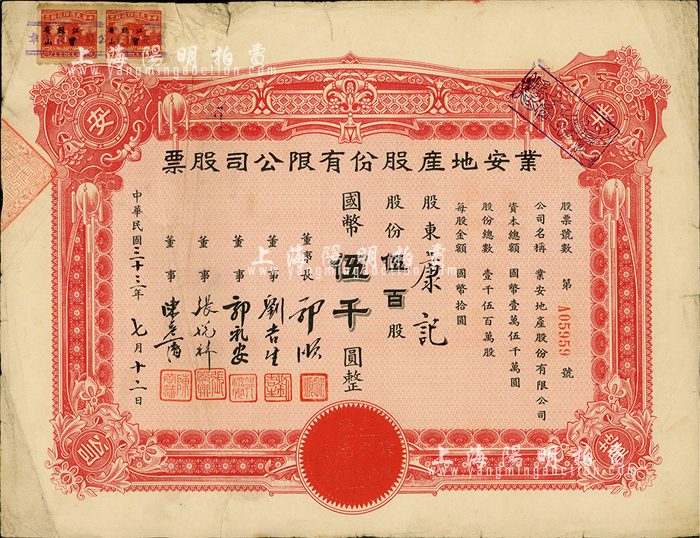 業安地產股份有限公司股票
股票號數 第 A05959 號
公司名稱 業安地產股份有限公司
資本總額 國幣壹萬伍千萬圓
股份總數 壹千伍百萬股
每股金額 國幣拾圓
股東 康記
股份 伍百 股
國幣 伍千 圓整
董事長 郭順
董事 劉吉生
董事 郭禮安
董事 張
董事 陳
中華民國三十三年七月十二日
業
安
公司
上海陽明拍賣
www.yangmingauction.com
上海陽明拍賣
www.yangmingauction.com
上海陽明拍賣
www.yangmingauction.com